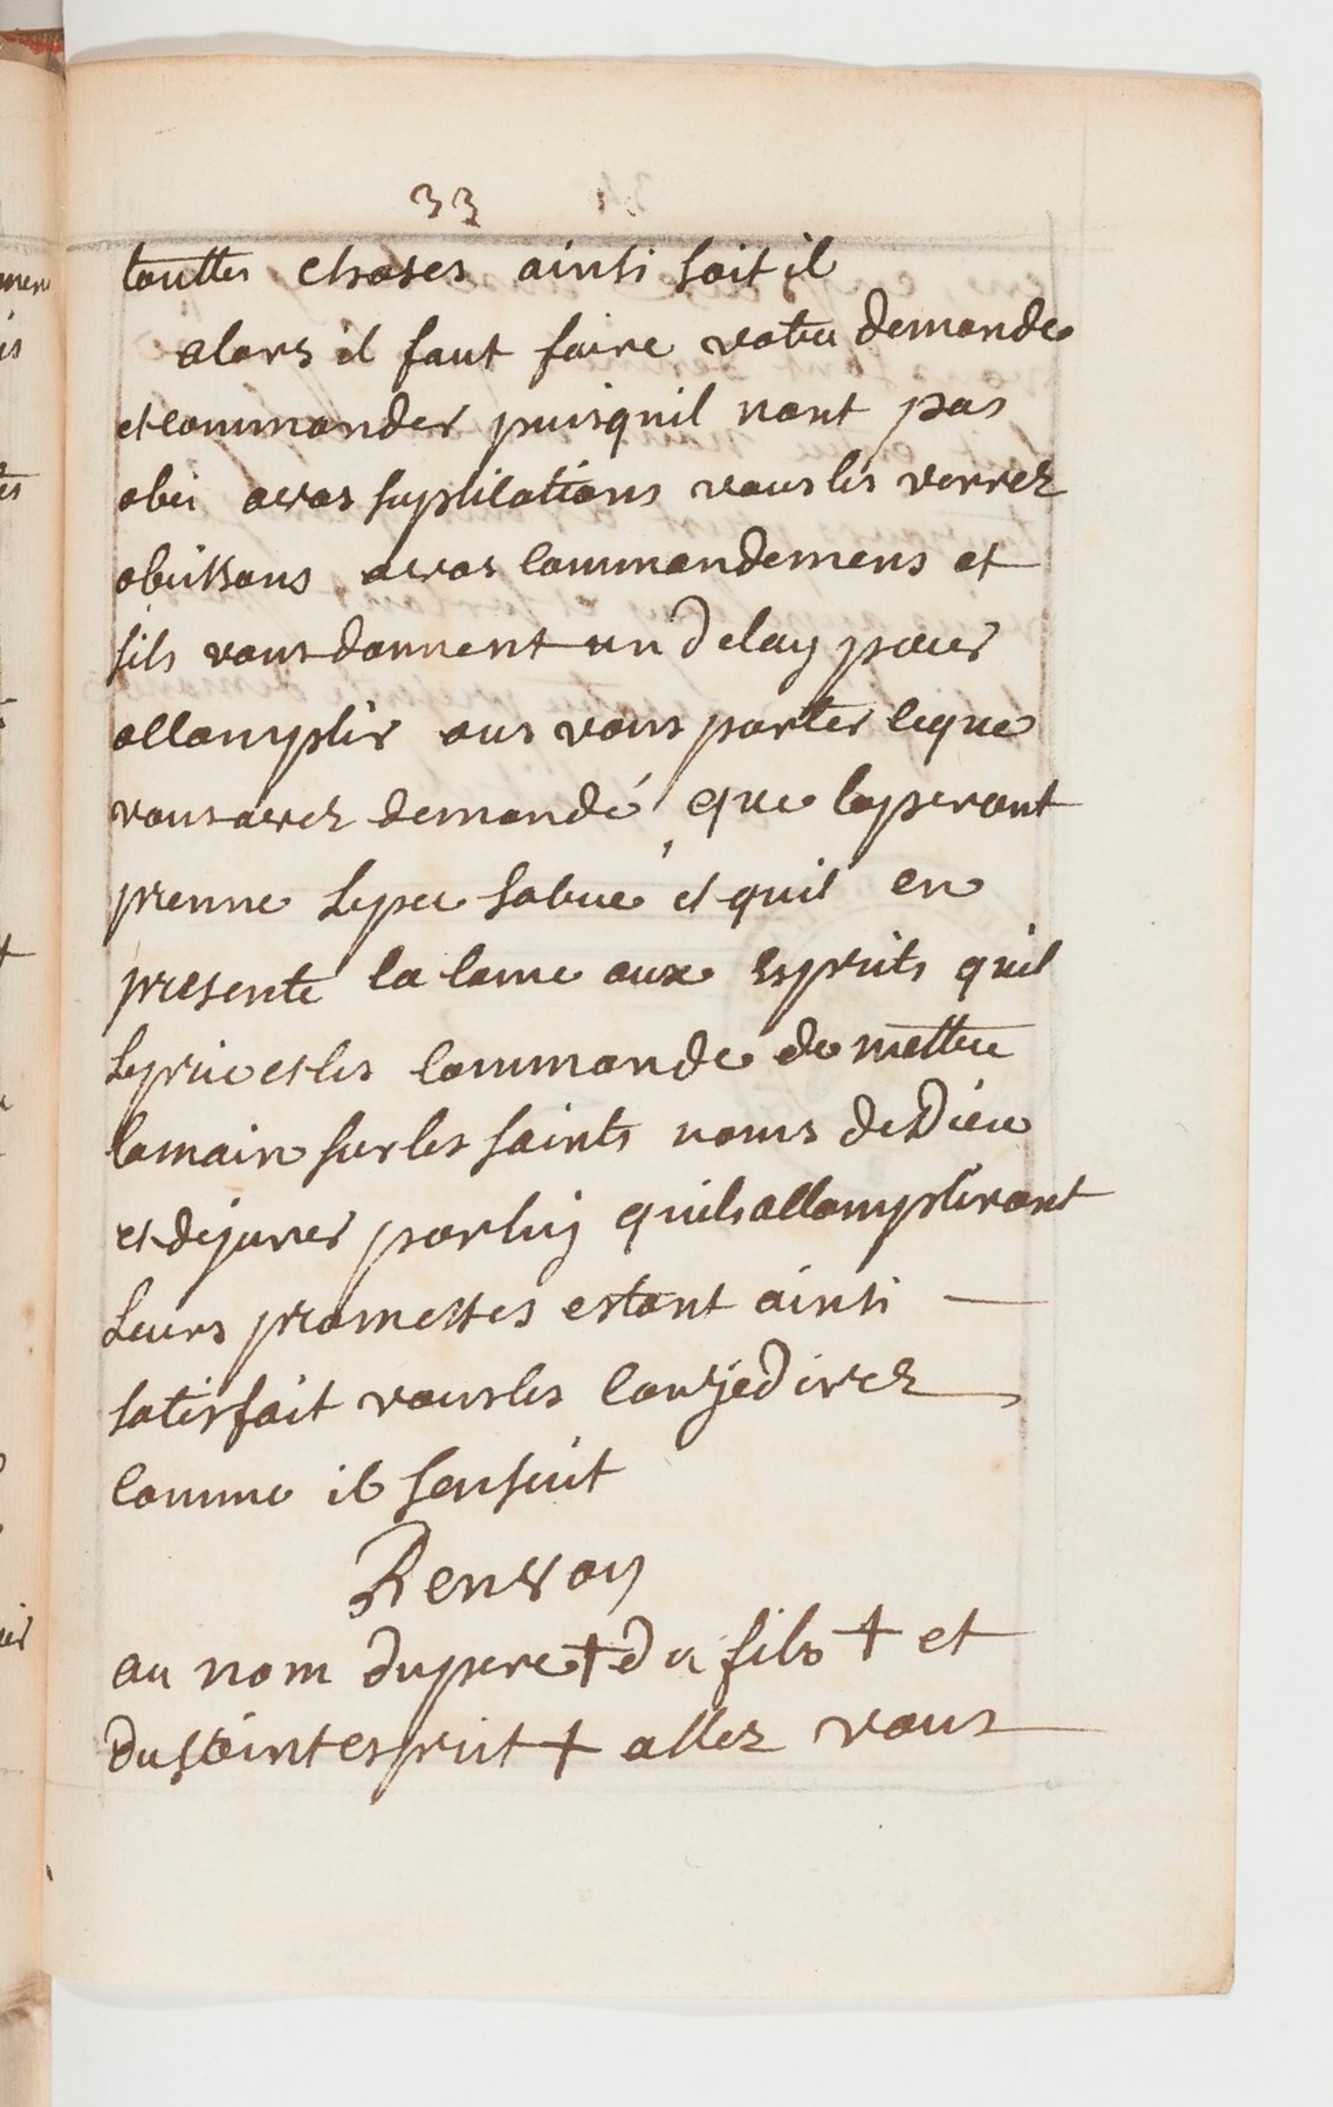 33
touttes choses ainsi soit il
alors il faut faire votre demande
et commander puisquil nont pas
obei avos suplications vous les verrez
obeissans avos commandemens et
sils vous donnent un delay pour
accomplir ous vous porter ceque
vous avez demandé, que loperant
prenne lepee sabue et quil en
presente la lame aux esprits quil
leprie et les commande de mettre
lamain sur les saints noms de Dieu
et dejurer parluy quils accompliront
leurs promesses estant ainsi
satisfait vous les conjedirez
comme il sensuit
Renvoy
au nom du pere + du fils + et
du st esprit + allez vous